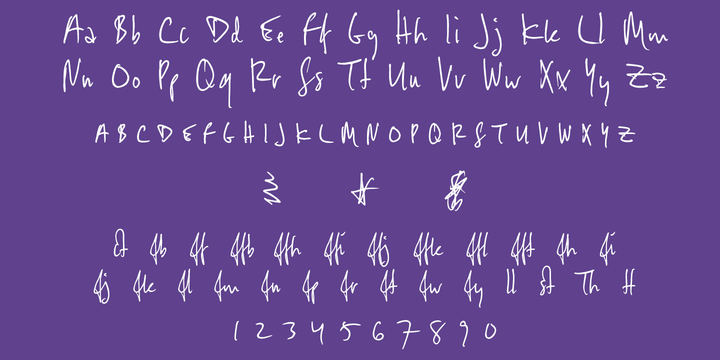 Aa Bb Cc Dd Ee Ff Gg Hh Ii Jj Kk Ll Mm
Nn Oo Pp Qq Rr Ss Tt Uu Vv Ww Xx Yy Zz
A B C D E F G H I J K L M N O P Q R S T U V W X Y Z
ff ffb ffh ffi ffj ffk ffl fft fh fi
fj fk fl fm fn fp fr ft fw fy ll st Th tt
1 2 3 4 5 6 7 8 9 0